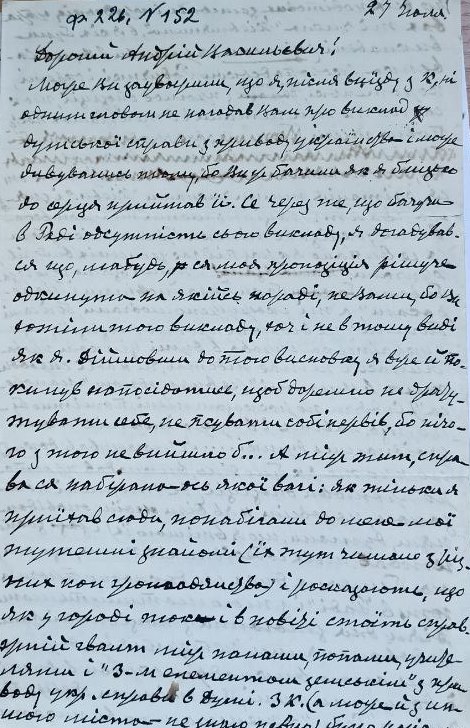 ф 226, N 152
27 Юля
Дорогий Андрій Васильєвич!
Може Ви зауважили, що я, після виїзду з К, ні
одним словом не нагадав Вам про виклад
думської справи з приводу українства і може
дивувались тому, бо Ви ж бачили як я близько
до серця прийняв її. Се через те, що бачучи
в Раді одсутність сього викладу, я догадував-
ся що, мабудь, ся моя пропозиція рішуче
одкинута на якійсь нараді, не Вами, бо Ви
хотіли того викладу, хоч і не в тому виді
як я. Дійшовши до того висновку я вже й по-
кинув напосідатись, щоб даремно не драту-
тувати себе, не псувати собі нервів, бо нічо-
го з того не вийшло б... А тим часом, спра-
ва ся набірала ось якої ваги: як тільки я
приїхав сюди, понабігали до мене мої
тутешні знайомі (їх тут чимало з ріж-
них кол громадянства) і росказують, що
як у городі так і в повіті стоїть справ-
жній гвалт між панами, попами, учите-
лями і "3-м елементом земським" з при-
воду укр. справи в Думі. З К. (а може й з ин-
шого міста